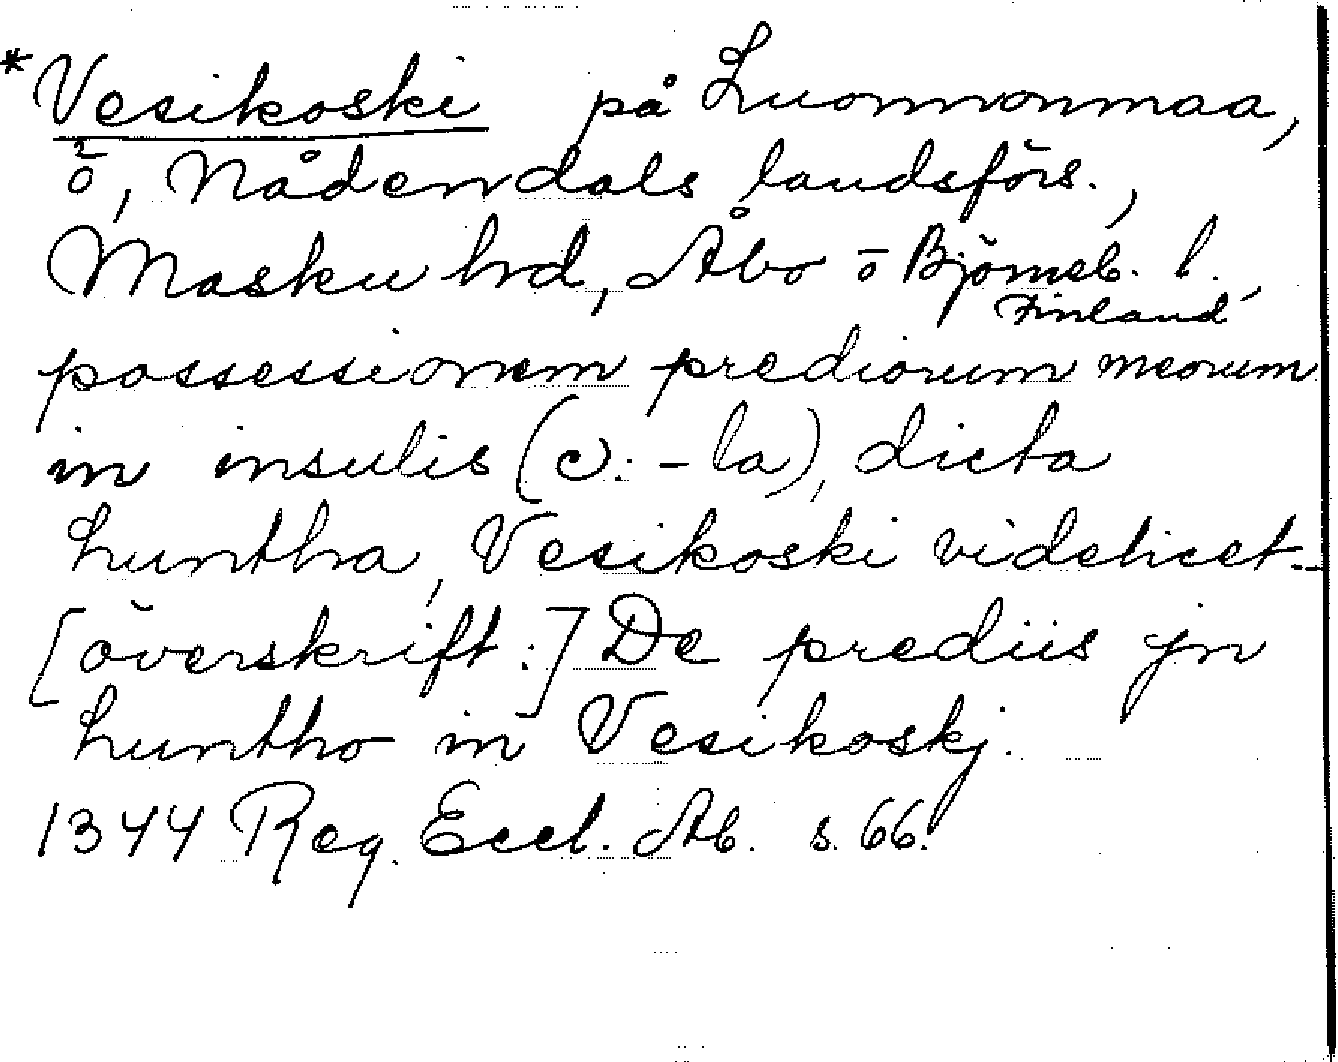 *Vesikoski på Luonnonmaa,
ö², Nådendals landsförs.,
Masku hd, Åbo o Björneb. l.,
Finland
possessionem prediorum meorum
in insulis (ɔ: -la), dicta
luntha, Vesikoski videlicet--
[överskrift:] De prediis jn
luntho in Vesikoskj.
1344 Reg. Eccl. Ab. s. 66.